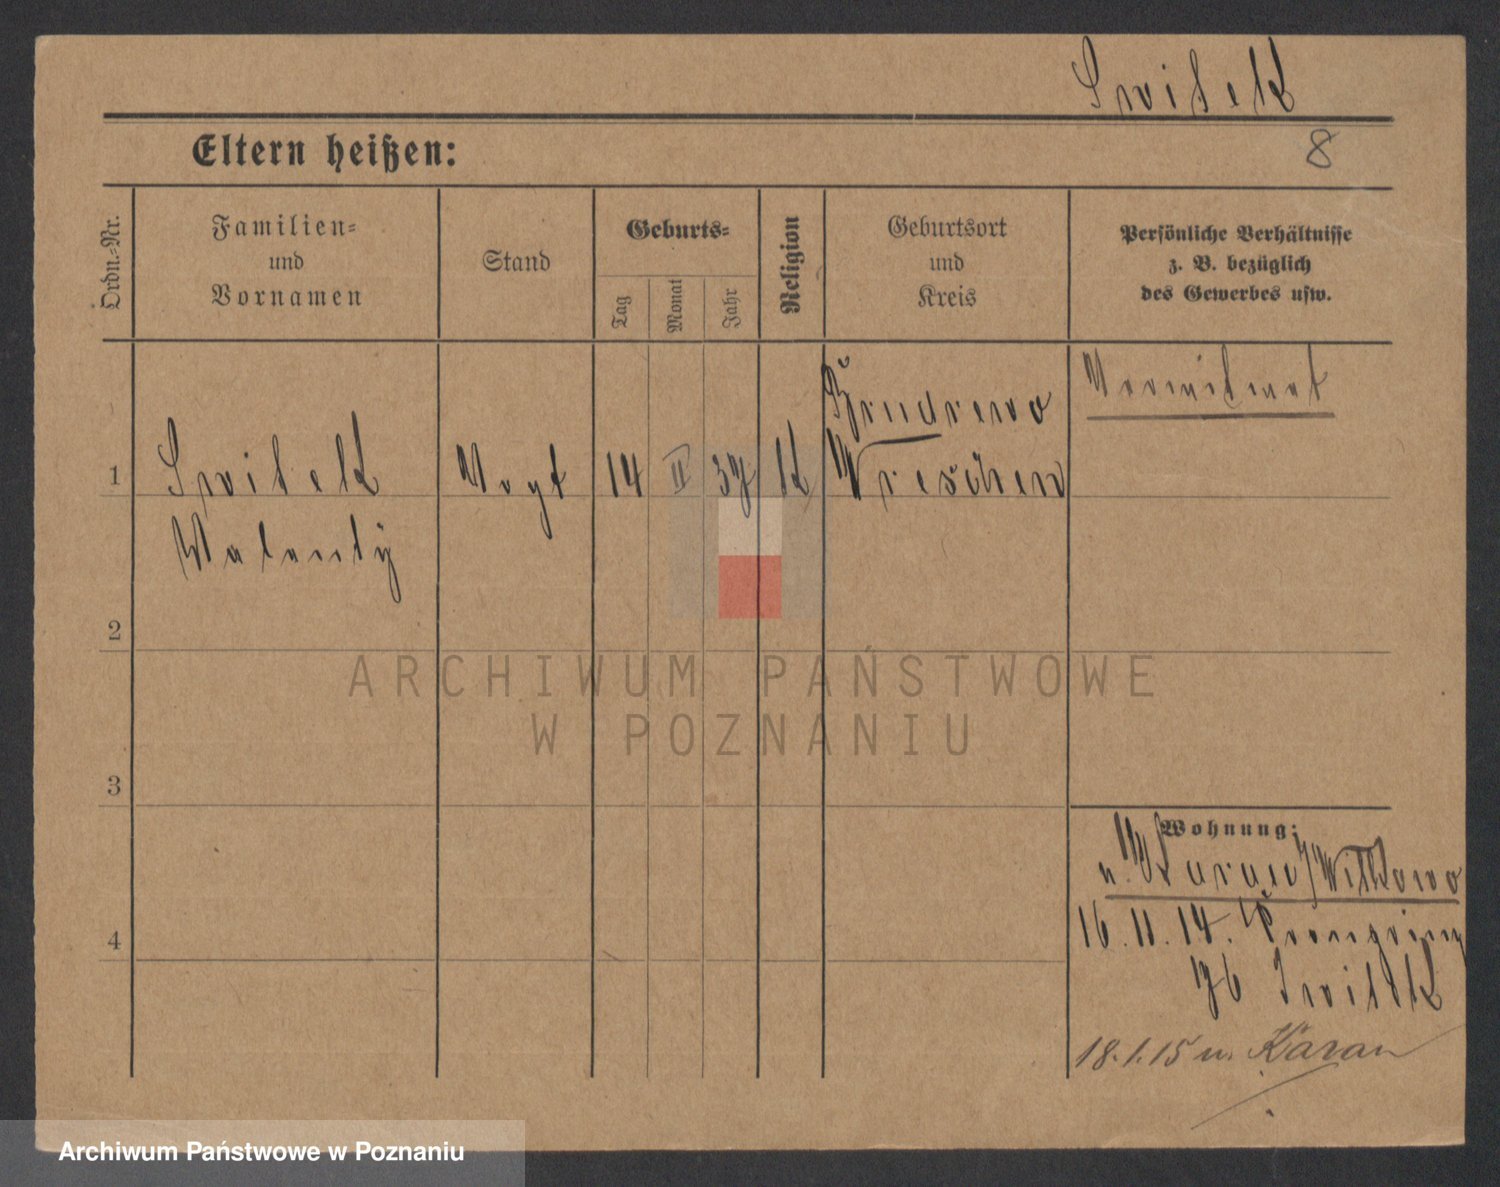 Switek
Eltern heißen:
8
Ordn.-Nr.
Familien-
und
Vornamen
Stand
Geburts-
Tag
Monat
Jahr
Religion
Geburtsort
und
Kreis
Persönliche Verhältnisse
z. B. bezüglich
des Gewerbes usw.
1
Switek
Walenty
Vogt
14
II
37
K
Wreschen
2
3
4
Wohnung:
n. Karau/Wittkowo
16.11.14.
76 Switek
18.1.15 n. Karau
ARCHIWUM PAŃSTWOWE
W POZNANIU
Archiwum Państwowe w Poznaniu